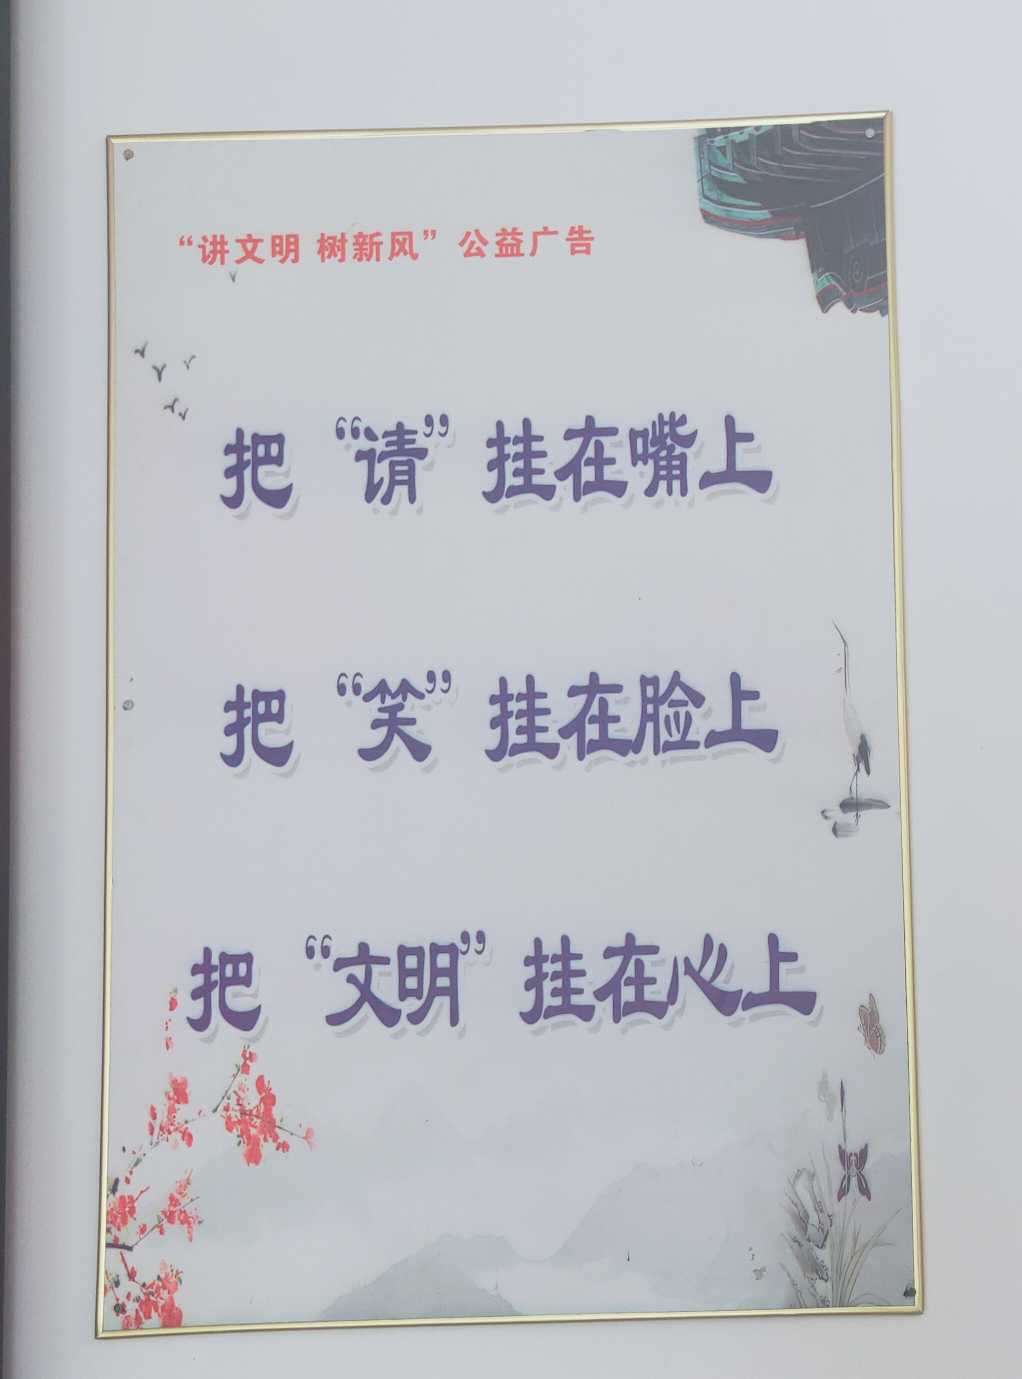 “讲文明 树新风”公益广告
把“请”挂在嘴上
把“笑”挂在脸上
把“文明”挂在心上